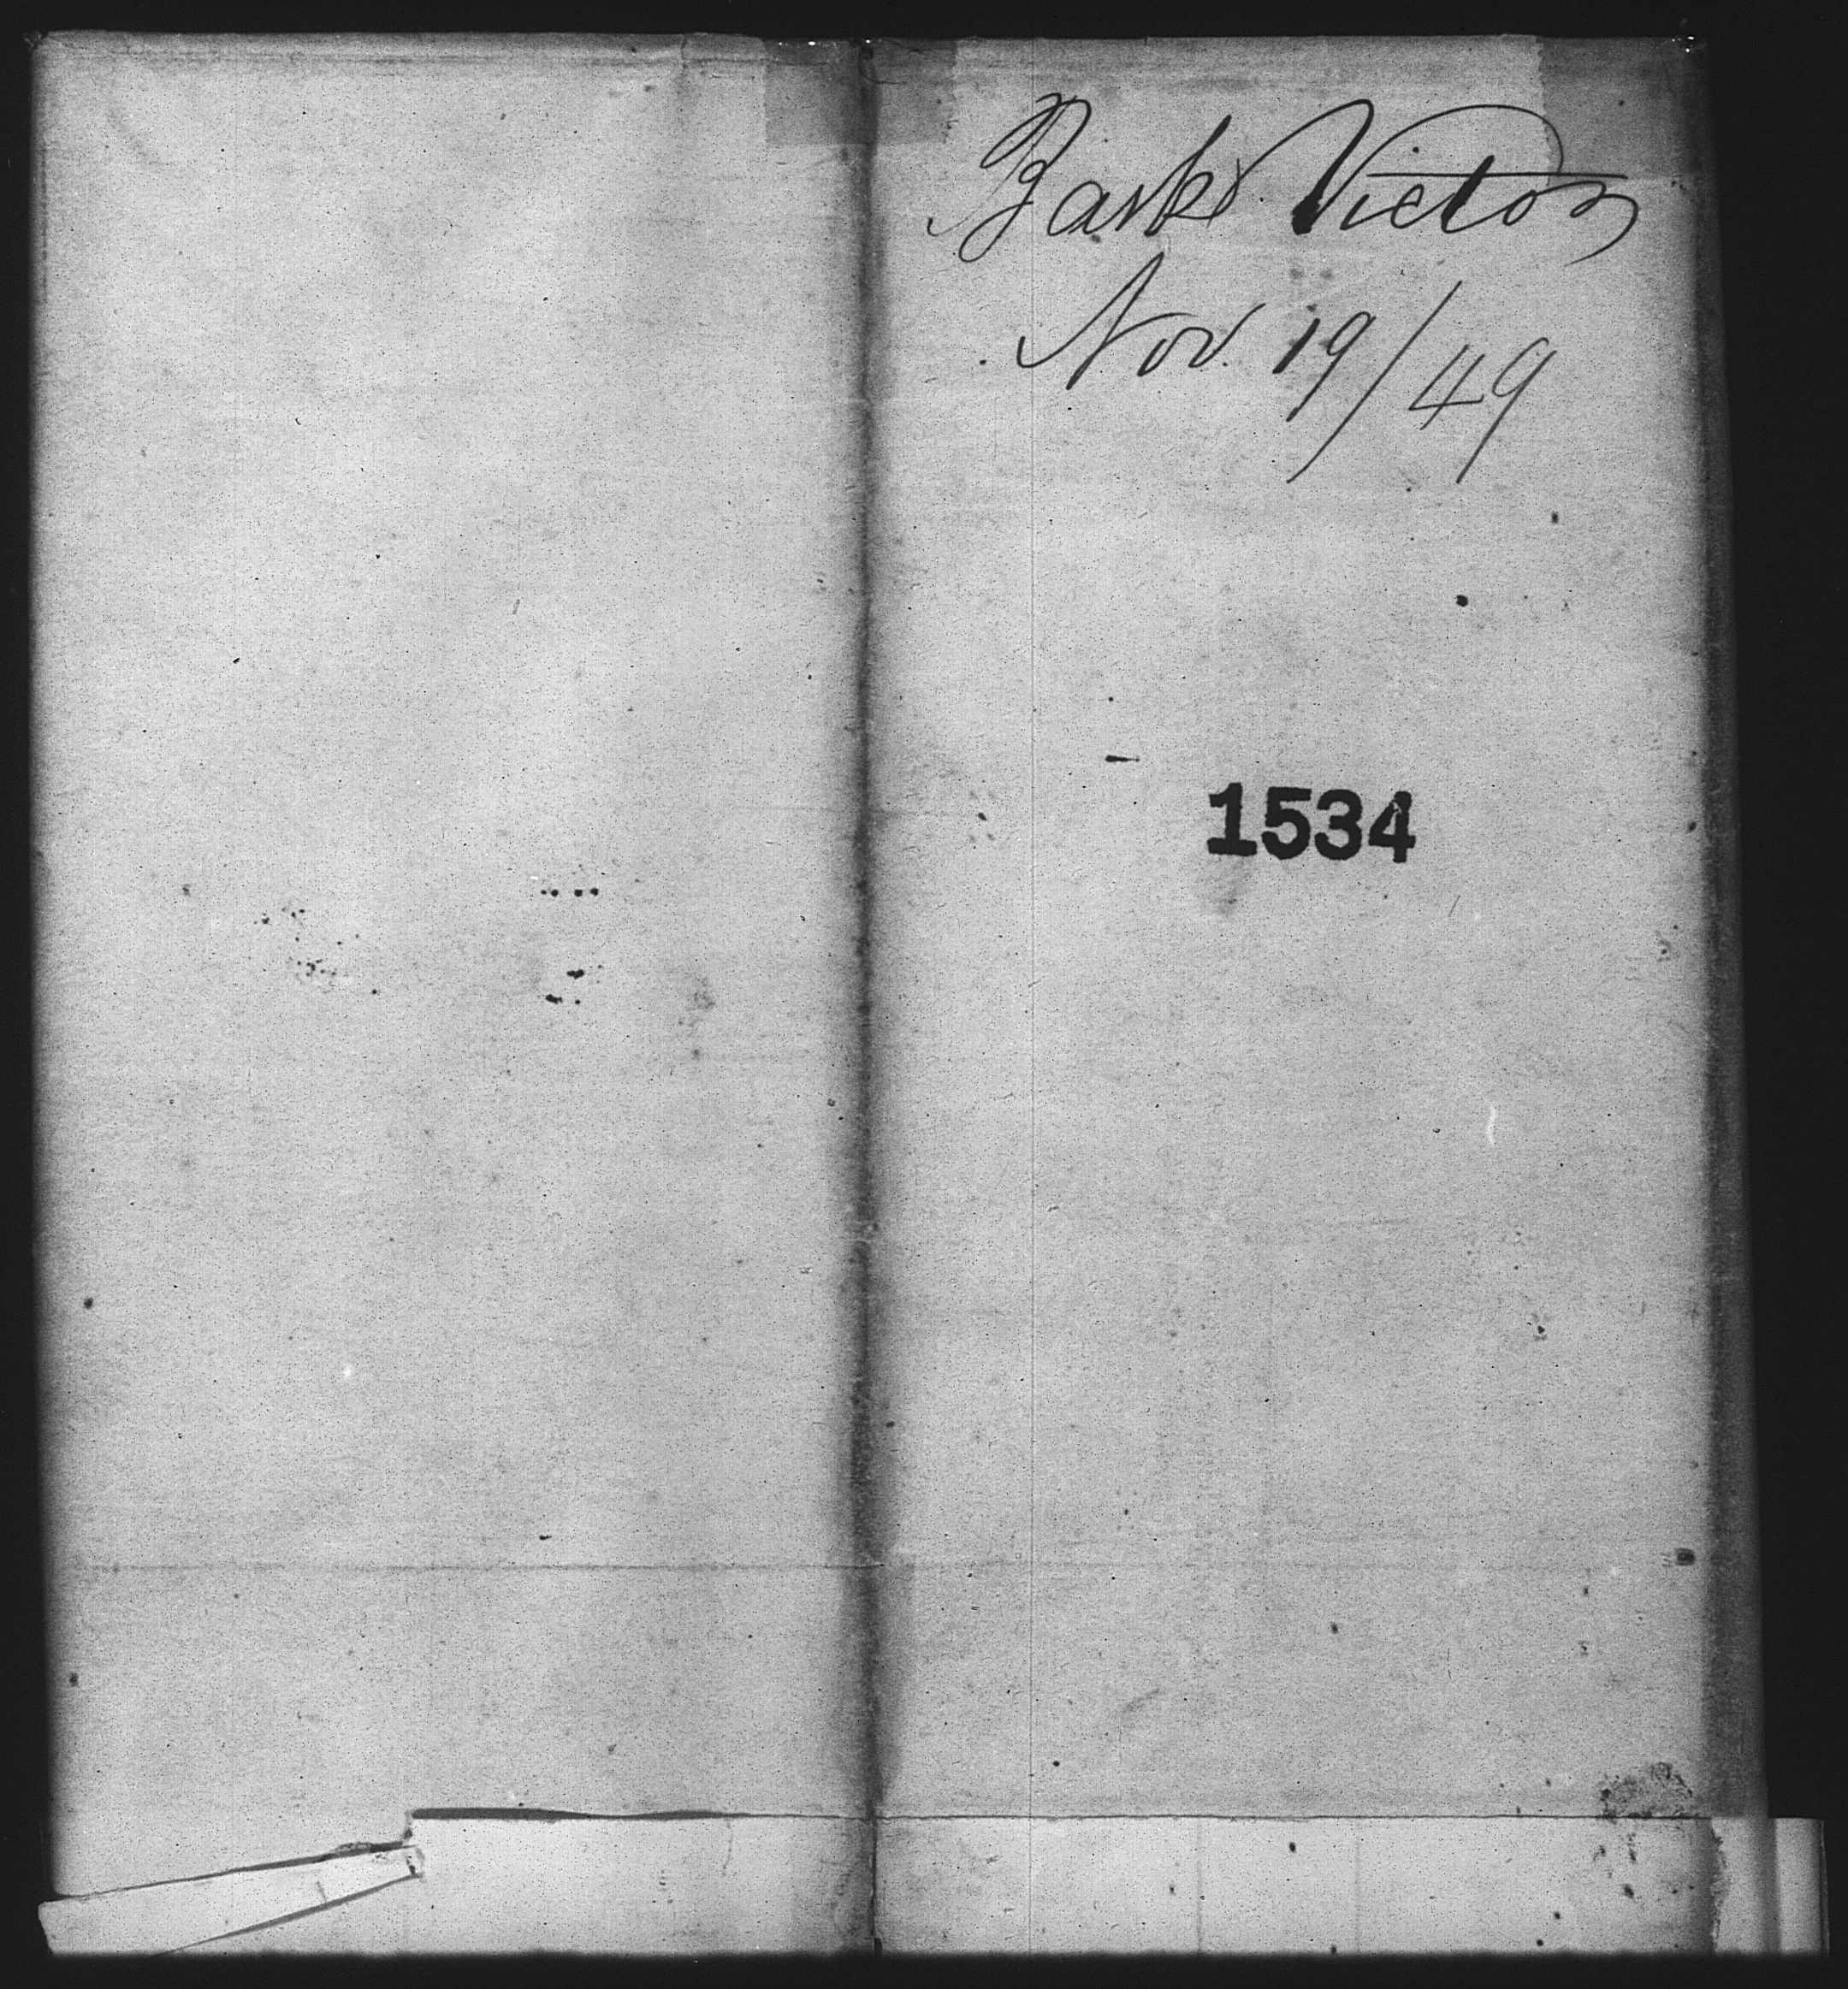 Bark Victor
Nov. 19/49
1534